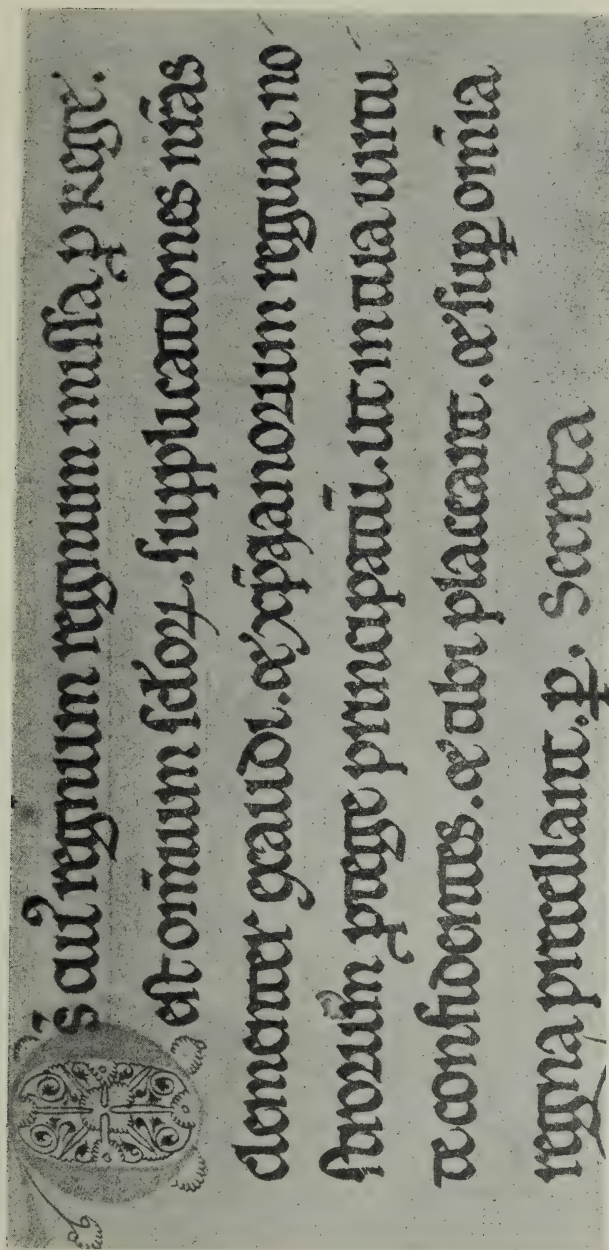 Ds̄ cuiꝰ regnum regnum missa ꝓ rege.
est om̄ium sc̄oꝝ. supplicationes nr̄as
clementer exaudi. & xp̄ianorum regum no
strorum ꝓtege principatū. ut in tua uirtu
te confidentes. & tibi placeant. & suꝑ om̄ia
regna precellant. ꝑ. Secreta